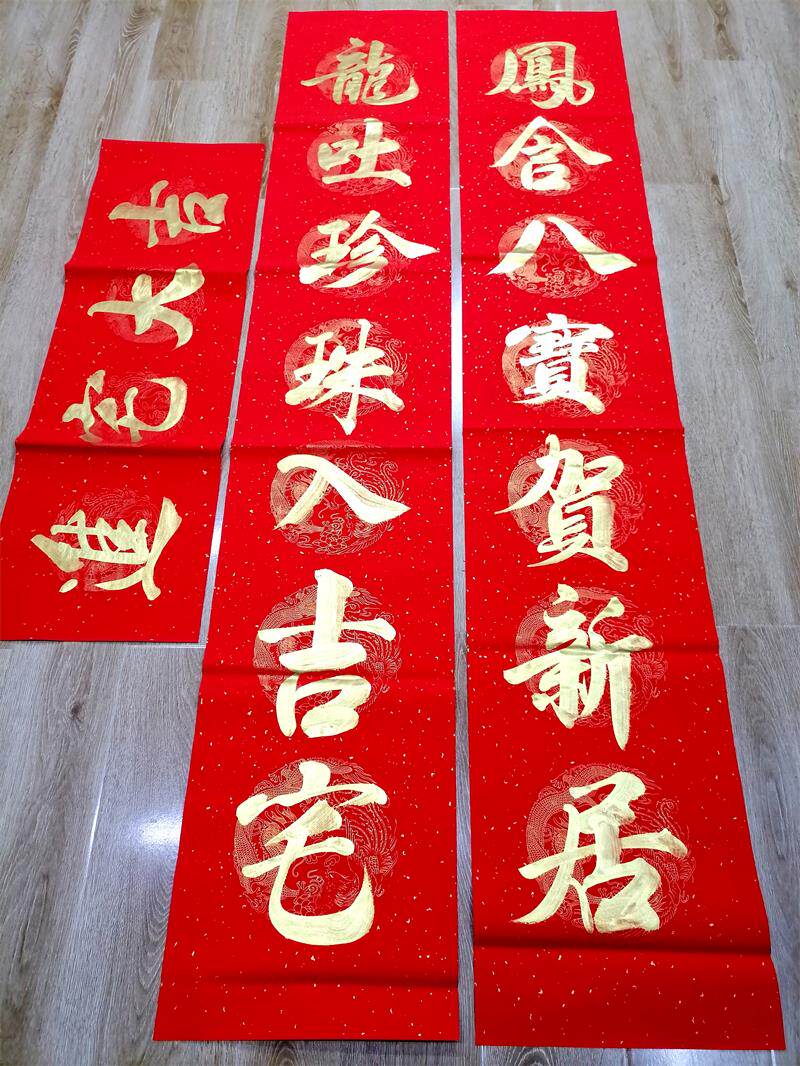 鳳含八寶賀新居
龍吐珍珠入吉宅
進宅大吉